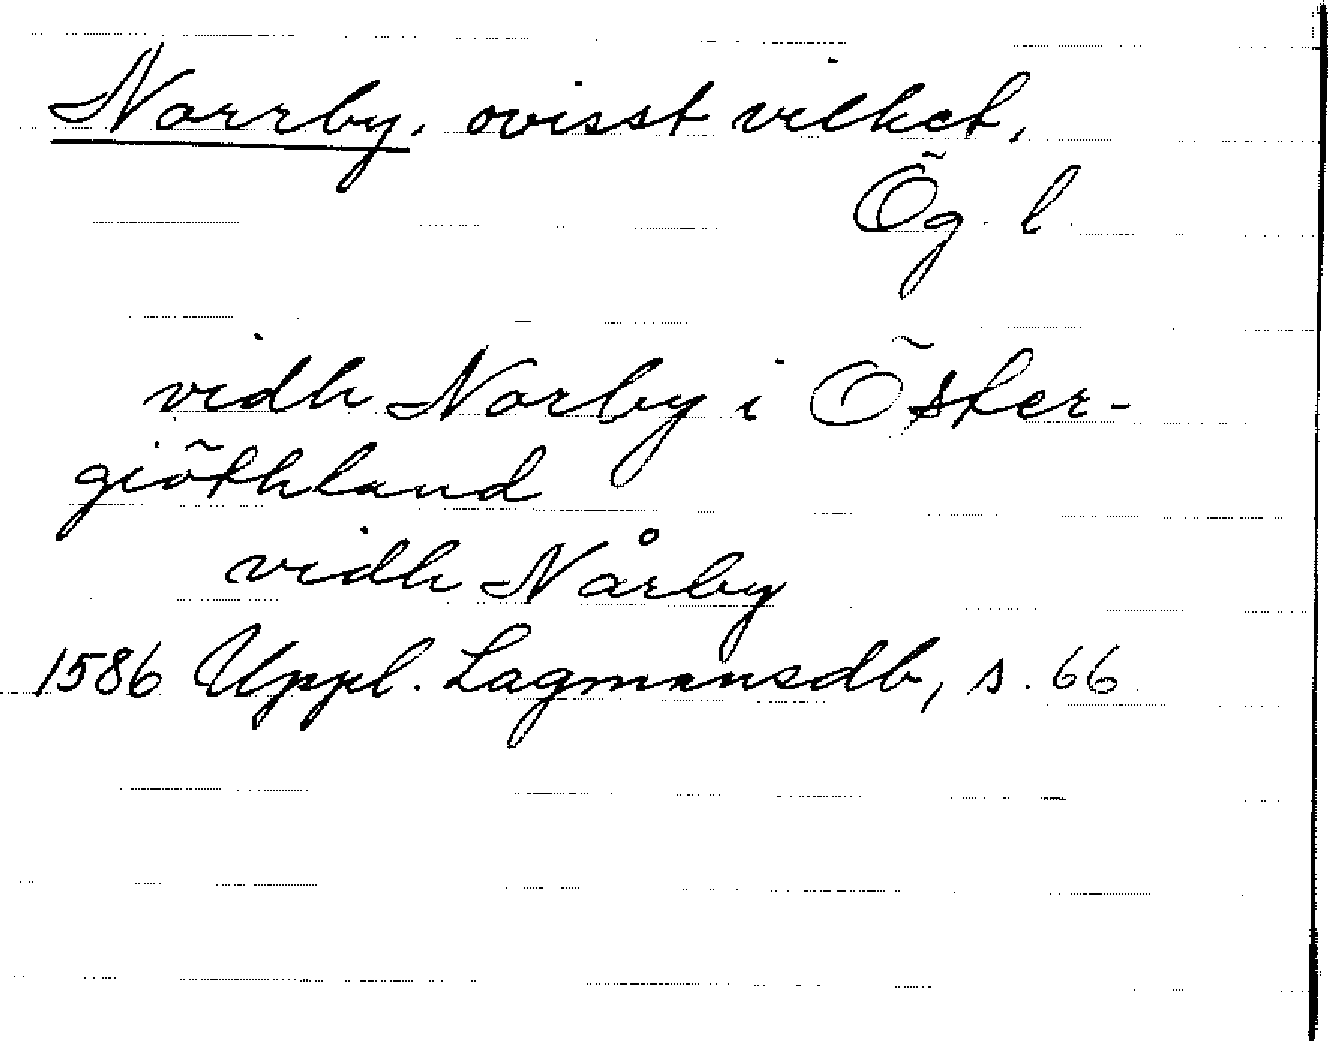 Norrby. ovisst vilket,
Ög. l.
vidh Norby i Öster-
giöthland
vidh Nårby
1586 Uppl. Lagmansdb, s. 66